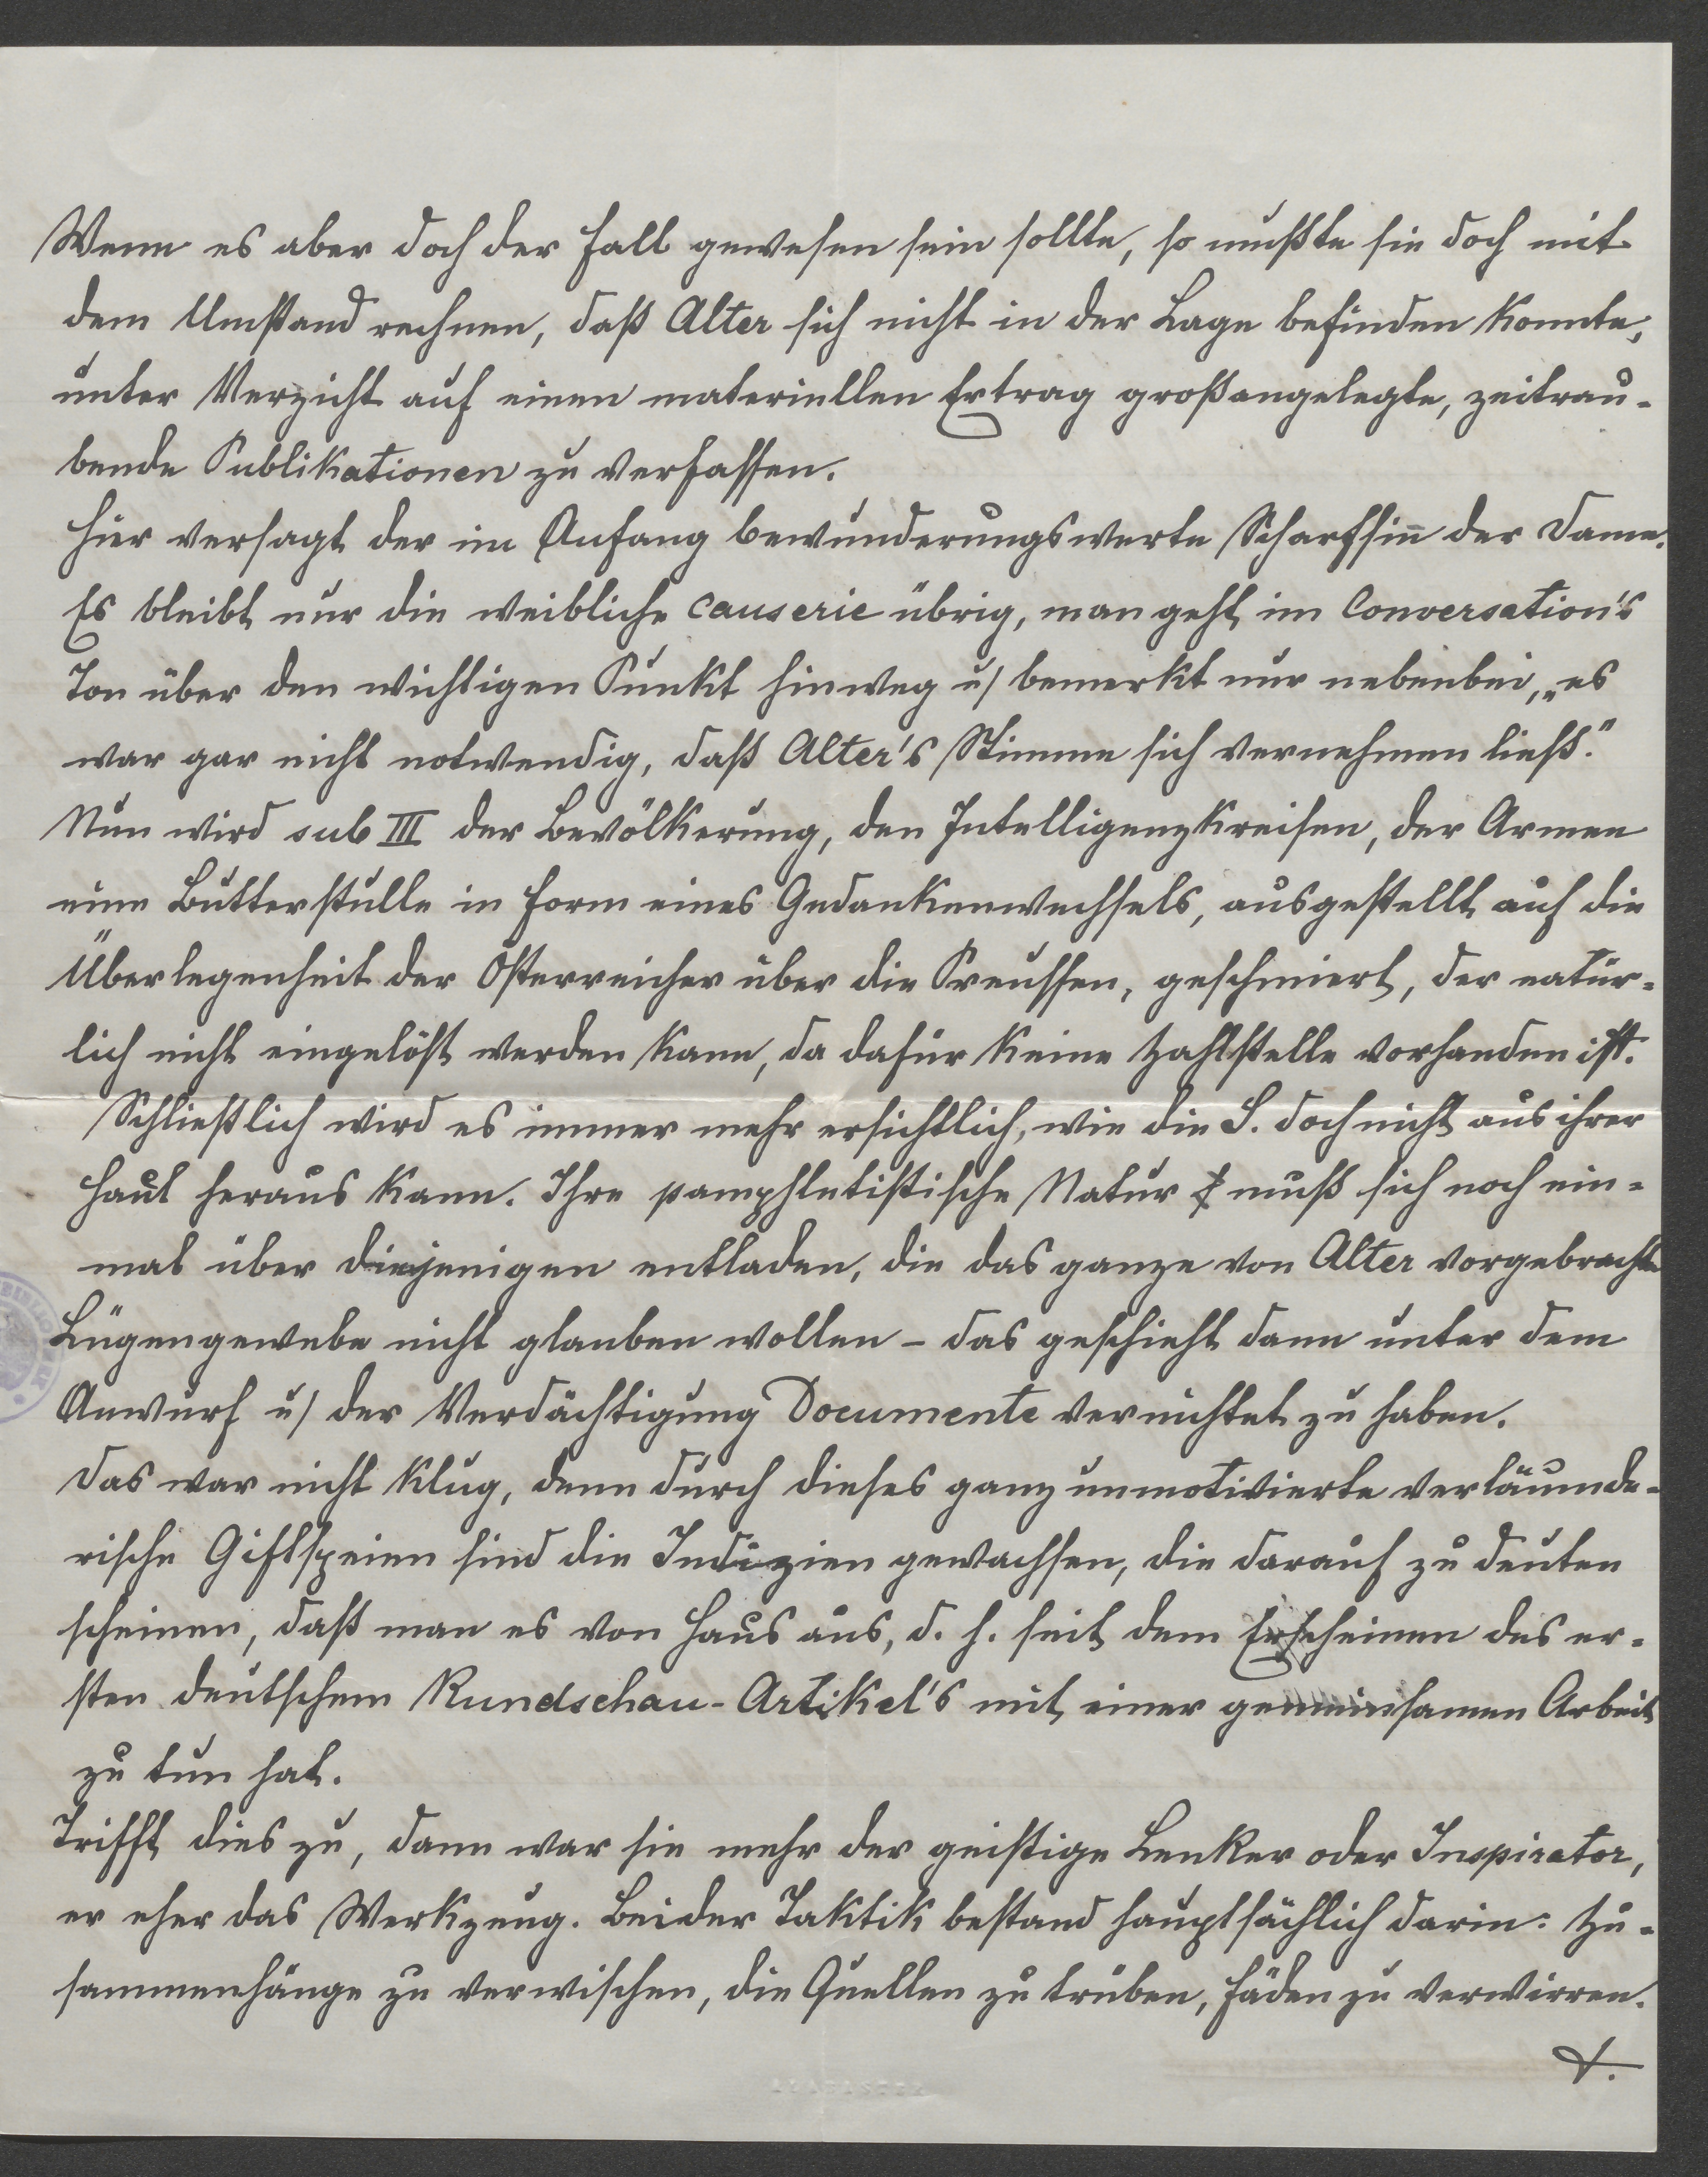 Wenn es aber doch der Fall gewesen sein sollte, so mußte sie doch mit
dem Umstand rechnen, daß Alter sich nicht in der Lage befinden konnte,
unter Verzicht auf einen materiellen Ertrag großangelegte, zeitrau-
bende Publikationen zu verfassen.
Hier versagt der im Anfang bewunderungswerte Scharfsinn̄ der Dame.
Es bleibt nur die weibliche causerie übrig, man geht im Conversation's
Ton über den wichtigen Punkt hinweg u/ bemerkt nur nebenbei, „es
war gar nicht notwendig, daß Alter's Stimme sich vernehmen ließ."
Nun wird sub III der Bevölkerung, den Intelligenzkreisen, der Armee
eine Butterstulle in Form eines Gedankenwechsels, ausgestellt auf die
Überlegenheit der Österreicher über die Preussen, geschmiert, der natür-
lich nicht eingelöst werden kann, da dafür keine Zahlstelle vorhanden ist.
Schließlich wird es immer mehr ersichtlich, wie die S. doch nicht aus ihrer
Haut heraus kann. Ihre pamphletistische Natur muß sich noch ein-
mal über diejenigen entladen, die das ganze von Alter vorgebrachte
Lügengewebe nicht glauben wollen – das geschieht dann unter dem
Anwurf u/ der Verdächtigung Documente vernichtet zu haben.
Das war nicht klug, denn durch dieses ganz unmotivierte verläumde-
rische Giftspeien sind die Indizien gewachsen, die darauf zu deuten
scheinen, daß man es von Haus aus, d. h. seit dem Erscheinen des er-
sten deutschem Rundschau-Artikel's mit einer gemeinsamen Arbeit
zu tun hat.
Trifft dies zu, dann war sie mehr der geistige Lenker oder Inspirator,
er eher das Werkzeug. Beider Taktik bestand hauptsächlich darin: Zu-
sammenhänge zu verwischen, die Quellen zu trüben, Fäden zu verwirren.